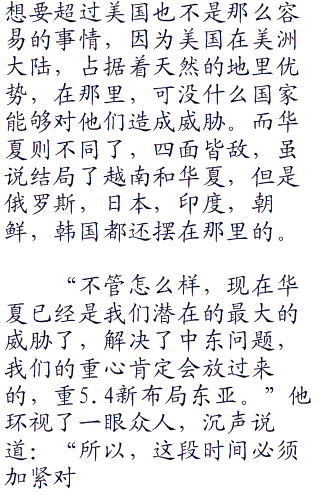 想要超过美国也不是那么容
易的事情，因为美国在美洲
大陆，占据着天然的地里优
势，在那里，可没什么国家
能够对他们造成威胁。而华
夏则不同了，四面皆敌，虽
说结局了越南和华夏，但是
俄罗斯，日本，印度，朝
鲜，韩国都还摆在那里的。
“不管怎么样，现在华
夏已经是我们潜在的最大的
威胁了，解决了中东问题，
我们的重心肯定会放过来
的，重5.4新布局东亚。”他
环视了一眼众人，沉声说
道：“所以，这段时间必须
加紧对